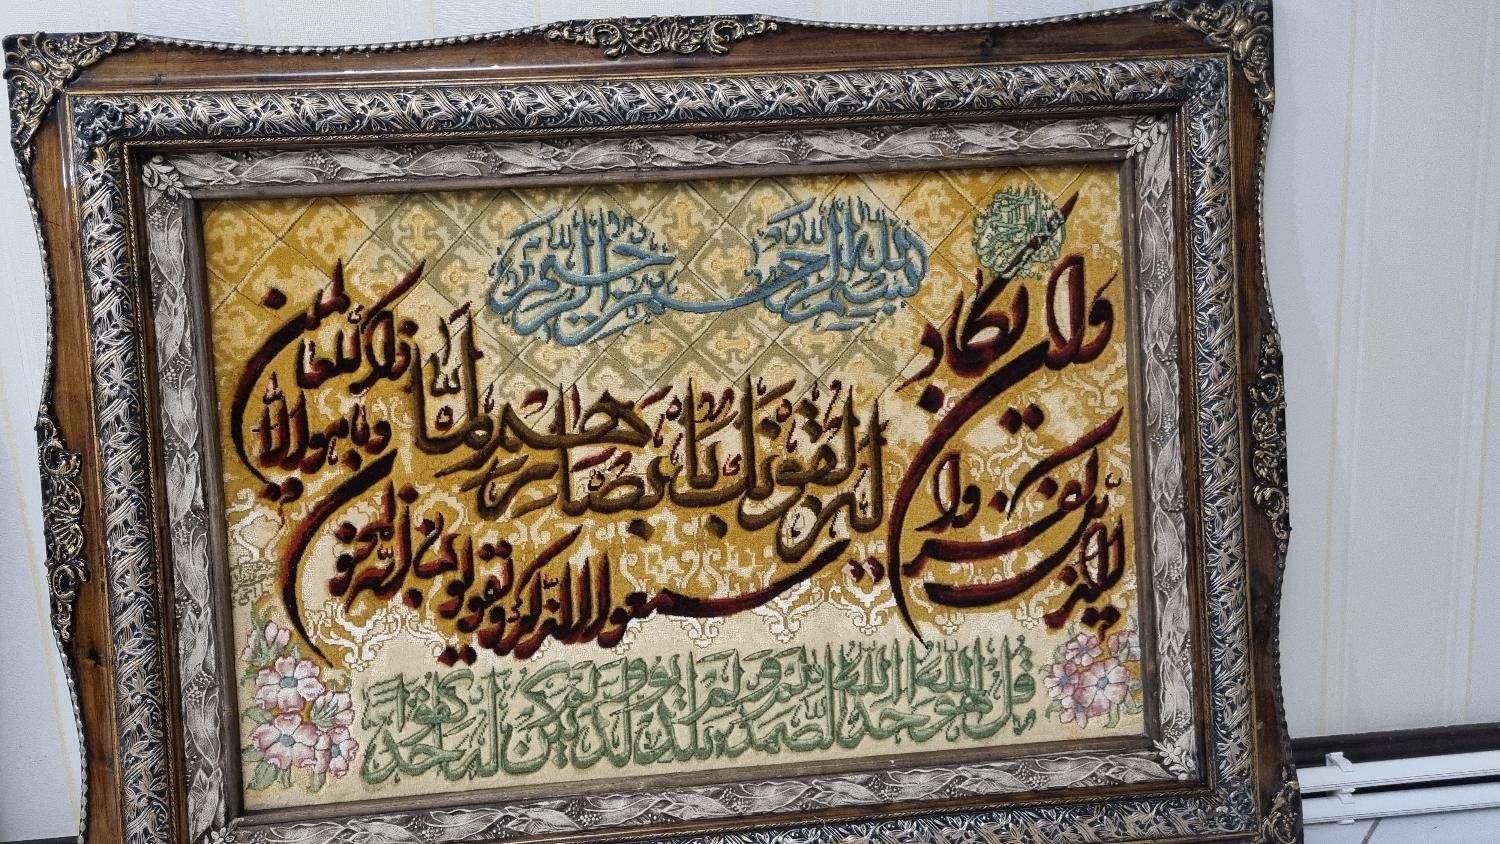 بسم الله الرحمن الرحیم
وان یکاد الذین کفروا
لیزلقونک بابصارهم لما
سمعوا الذکر ویقولون انه لمجنون
وما هو الا ذکر للعالمین
قل هو الله احد الله الصمد لم یلد ولم یولد ولم یکن له کفوا احد